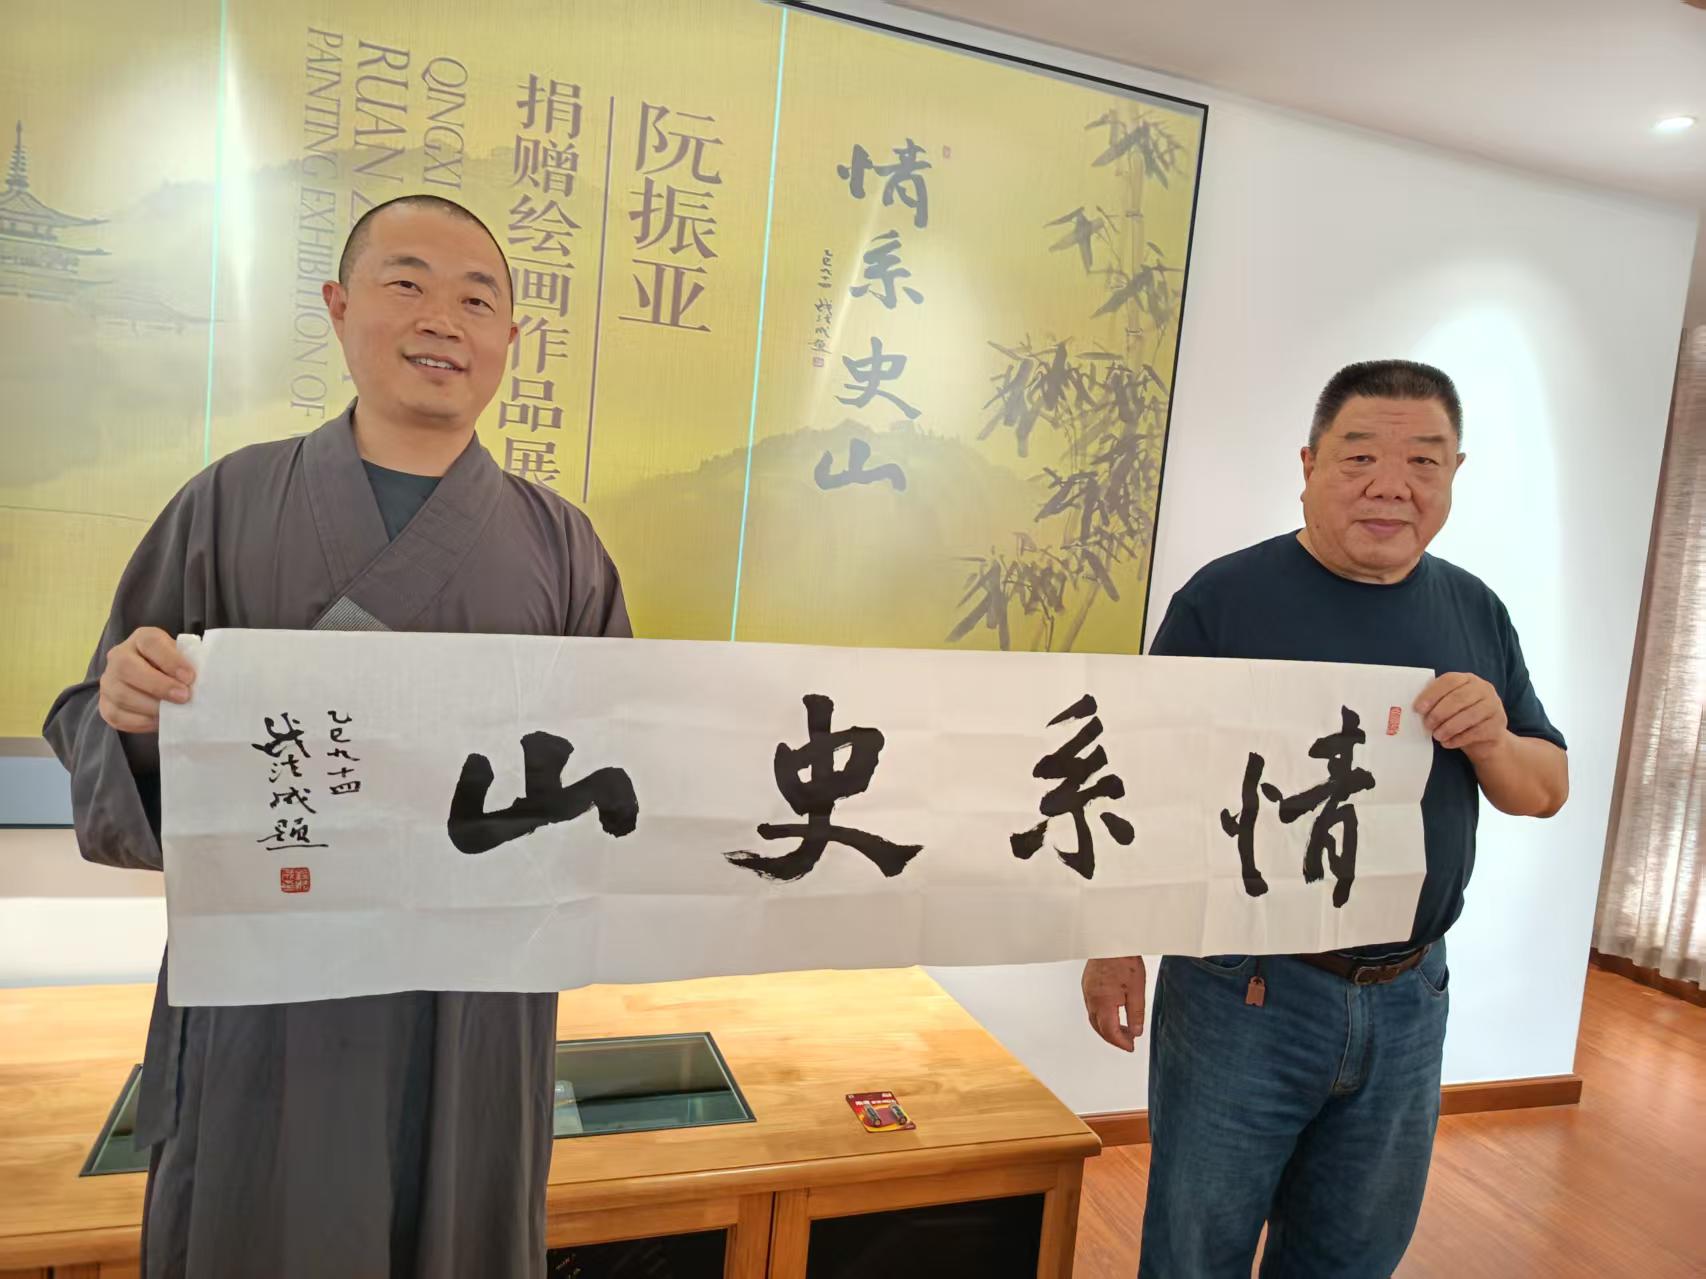 情系史山
阮振亚
捐赠绘画作品展
QINGXI
RUAN
PAINTING EXHIBITION OF
情系史山
乙巳九十四
战法成题